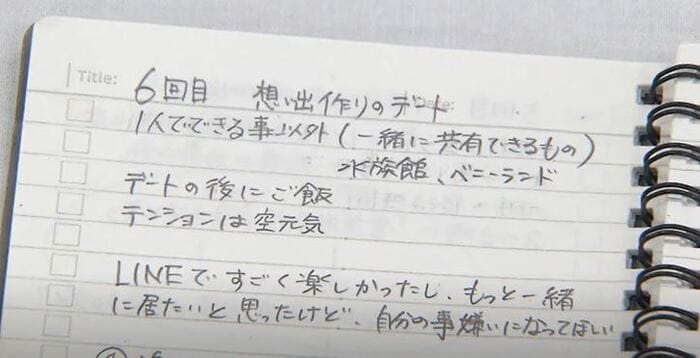 Title:
6回目 想い出作りのデート
1人でできる事以外(一緒に共有できるもの)
水族館、ベニーランド
デートの後にご飯
テンションは空元気
LINEですごく楽しかったし、もっと一緒
に居たいと思ったけど、自分の事嫌いになってほしい